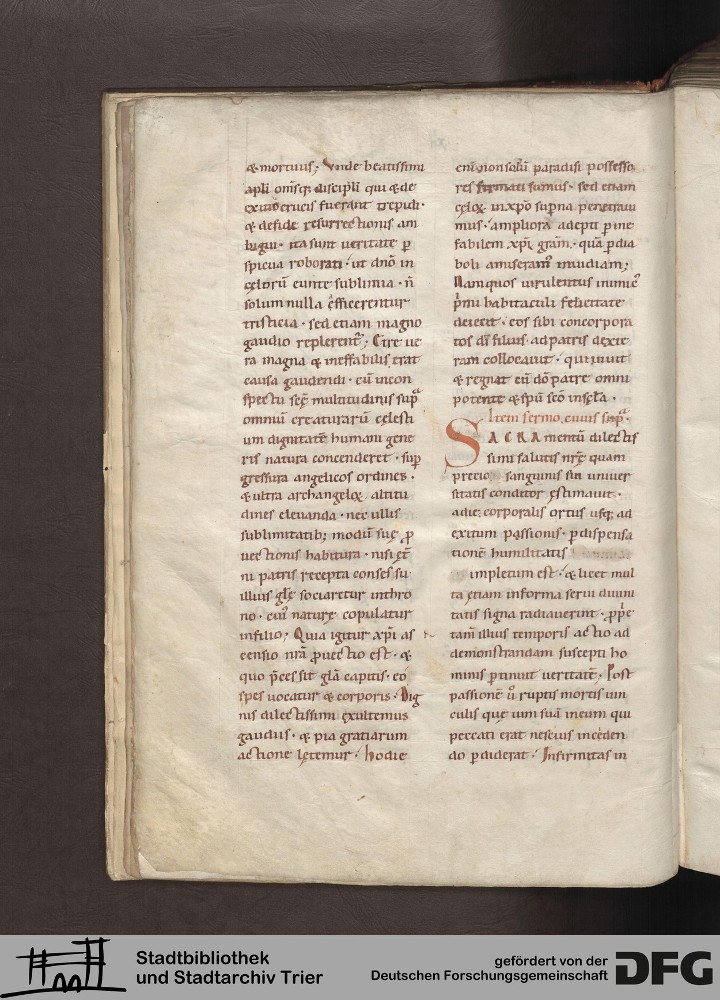 & mortuus; Vnde beatissimi
apłi omīsq; discipłi qui & de
exitu crucis fuerant trepidi·
& de fide resurrectionis am
bigui· ita sunt ueritate p̱
spicua roborati· ut dn̄o in
cęlorū eunte sublimia· n̄
solum nulla efficerentur
tristicia· sed etiam magno
gaudio replerent̄; Et re ue
ra magna & ineffabilis erat
causa gaudendi· cū in con
spectu scę̄ multitudinis sup̄
omniū creaturarū cęlesti
um dignitatē humani gene
ris natura conscenderet· sup̄
gressura angelicos ordines·
& ultra archangeloꝝ altitu
dines eleuanda· nec ullis
sublimitatib; modū suę p̱
uectionis habitura· nisi ęt̄
ni patris recepta consessu·
illius głę sociaretur in thro
no· cui' naturę copulatur
in filio; Quia igitur xp̄i as
censio nrā p̱uectio est· &
quo p̄cessit głā capitis· eo
spes uocatur & corporis· Dig
nis dilectissimi exultemus
gaudiis· & pia gratiarum
actione lętemur· Hodie
eni̅ non solū paradisi possesso
res firmati sumus· sed etiam
cęloꝝ in xp̄o sup̱na penetraui
mus· ampliora adepti p̱ ine
fabilem xp̄i gram̄· quā p̱ dia
boli amiseram' inuidiam;
Nam quos uirulentus inimic'
p̄mi habitaculi felicitate
deiecit· eos sibi concorpora
tos dī filius· ad patris dexte
ram collocauit· qui uiuit
& regnat cū dō patre omni
potente & sp̄u scō in scła·
Item sermo cuius sup̄a·
SACRAmentū dilectis
simi salutis nrę̄ quam
precio sanguinis sui uniuer
sitatis conditor ęstimauit·
a die corporalis ortus usq; ad
exitum passionis· p̱ dispensa
tionē humilitatis
impletum est· & licet mul
ta etiam in forma serui diuini
tatis signa radiauerint· p̱p̄e
tam̄ illius temporis actio ad
demonstrandam suscepti ho
minis p̱tinuit ueritatē· Post
passionē ū ruptis mortis uin
culis quę uim suā in eum qui
peccati erat nescius inceden
do p̱diderat· Infirmitas in
Stadtbibliothek
und Stadtarchiv Trier
gefördert von der
Deutschen Forschungsgemeinschaft
DFG